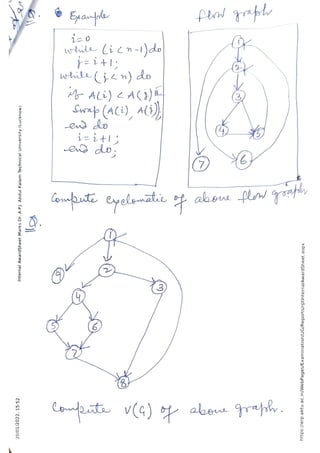 Q. Example
flow graph
i = 0
while (i < n-1) do
j = i + 1;
while (j < n) do
if A(i) < A(j)
Swap (A(i), A(j));
end do
i = i + 1;
end do;
1
2
3
4
5
7
6
Compute cyclomatic of above flow graph
Q.
1
9
2
3
4
5
6
7
8
Compute V(G) of above graph.
Internal AwardSheet Marks Dr. A.P.J. Abdul Kalam Technical University (Lucknow)
20/01/2022, 15:52